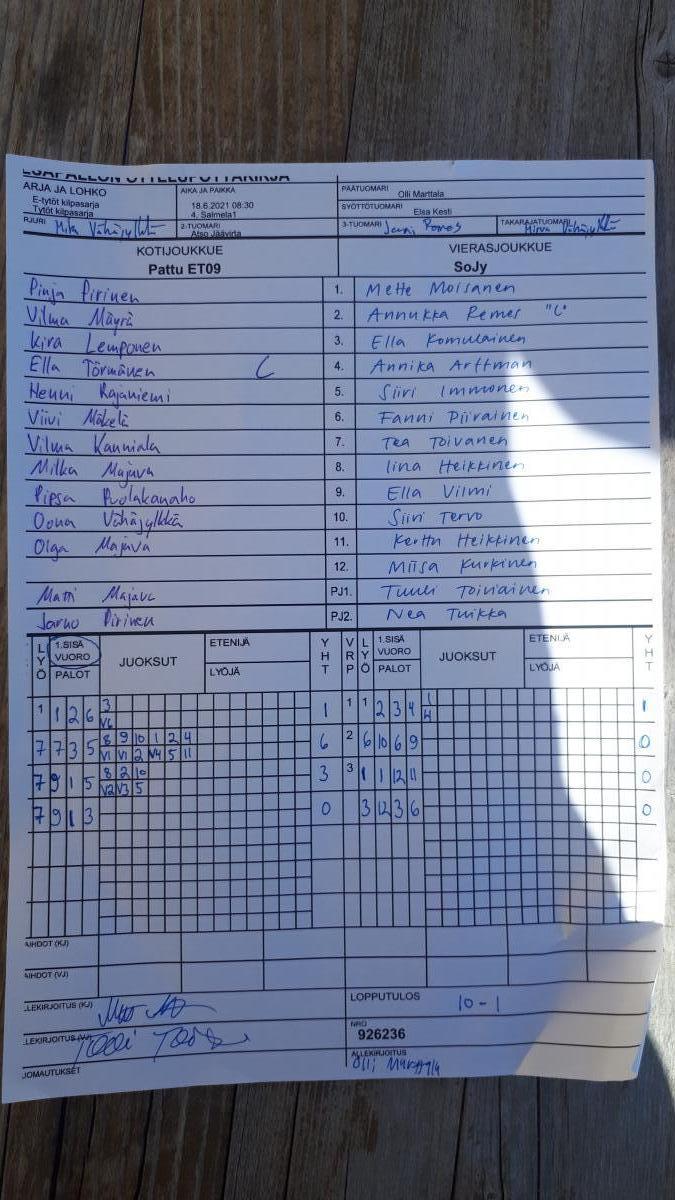 ARJA JA LOHKO
E-tytöt kilpasarja
Tytöt kilpasarja
AIKA JA PAIKKA
18.6.2021 08:30
4, Salmela1
PÄÄTUOMARI Olli Marttala
SYÖTTÖTUOMARI Elsa Kesti
PJURI Mika Vähäjylkkä
2-TUOMARI Atso Jäävirta
3-TUOMARI Jenni
TAKARAJATUOMARI Mirva Vähäjylkkä
KOTIJOUKKUE VIERASJOUKKUE
Pattu ET09 SoJy
Pinja Pirinen 1. Mette Moisanen
Vilma Mäyrä 2. Annukka Remes "C"
Kira Lemponen 3. Ella Komulainen
Ella Törmänen C 4. Annika Arffman
Henni Rajaniemi 5. Siiri Immonen
Viivi Mäkelä 6. Fanni Piirainen
Vilma Kanniala 7. Tea Toivanen
Milka Majava 8. Iina Heikkinen
Pipsa Puolakanaho 9. Ella Vilmi
Oona Vähäjylkkä 10. Siiri Tervo
Olga Majava 11. Kerttu Heikkinen
12. Miisa Kurkinen
Matti Majava PJ1. Tuuli Toiviainen
Jarno Pirinen PJ2. Nea Tuikka
LYÖ 1.SISÄ VUORO PALOT JUOKSUT ETENIJÄ LYÖJÄ YHT VRP LYÖ 1.SISÄ VUORO PALOT JUOKSUT ETENIJÄ LYÖJÄ YHT
1 1 2 6 3 1 1 1 2 3 4 1 1
V6 4
7 7 3 5 8 9 10 1 2 4 6 2 6 10 6 9 0
V1 V1 2 V4 5 11
7 9 1 5 8 2 10 3 3 1 1 12 11 0
V2 V3 5
7 9 1 3 0 3 12 3 6 0
AIHDOT (KJ)
AIHDOT (VJ)
LLEKIRJOITUS (KJ)
LOPPUTULOS 10-1
LLEKIRJOITUS (VJ)
NRO
926236
JOMAUTUKSET
ALLEKIRJOITUS
Olli Marttala